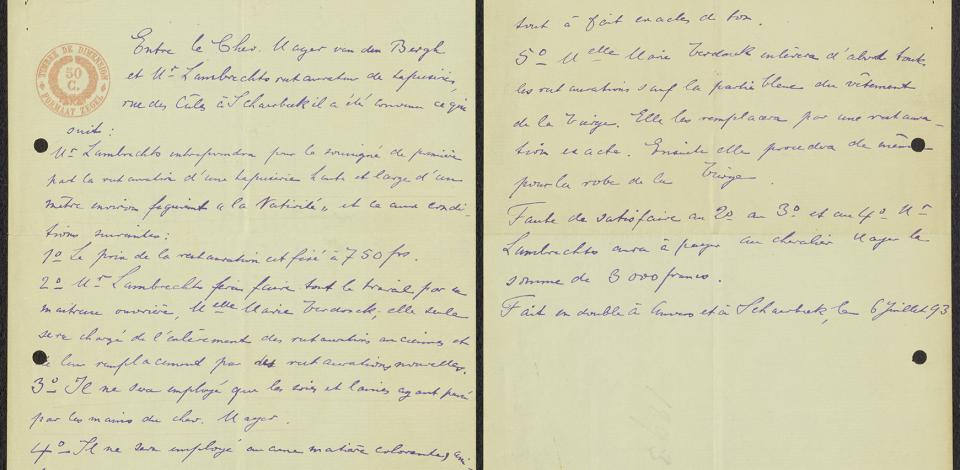 TIMBRE DE DIMENSION
50
C.
FORMAAT ZEGEL
Entre le Chev. Mayer van den Bergh
et Mr. Lambrechts restaurateur de tapisseries,
rue des à Schaerbeek il a été convenu ce qui
suit:
Mr. Lambrechts entreprendra pour le soussigné de première
part la restauration d'une tapisserie haute et large d'un
mètre environ figurant « la Nativité » et ce aux condi-
tions suivantes:
1o Le prix de la restauration est fixé à 750 frs.
2o Mr Lambrechts fera faire tout le travail par sa
maitresse ouvrière, Melle Marie Verdonck, elle seule
sera chargé de l'enlèvement des restaurations anciennes et
de leur remplacement par des restaurations nouvelles.
3o Il ne sera employé que les soies et laines ayant passé
par les mains du chev. Mayer.
4o Il ne sera employé aucune matière colorante,
tout à fait exactes de ton.
5o Melle Marie Verdonck enlèvera d'abord toutes
les restaurations sauf la partie bleue du vêtement
de la Vierge. Elle les remplacera par une restaura-
tion exacte. Ensuite elle procedra de même
pour la robe de la Vierge.
Faute de satisfaire au 2o au 3o et au 4o Mr
Lambrechts aura à payer au chevalier Mayer la
somme de 3000 francs.
Fait en double à Anvers et à Schaerbeek, le 6 Juillet 93